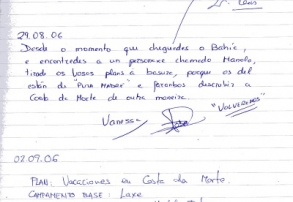 Luis
29.08.06
Desde o momento que cheguedes a Bahía,
e encontredes a un personaxe chamado Manolo,
tirade os vosos plans a basura, porque os del
están de "PUTA MADRE" e faranbos descubrir a
Costa da Morte de outra maneira.
"VOLVEREMOS"
Vanessa
02.09.06
PLAN: Vacaciones en Costa da Morte.
CAMPAMENTO BASE: Laxe